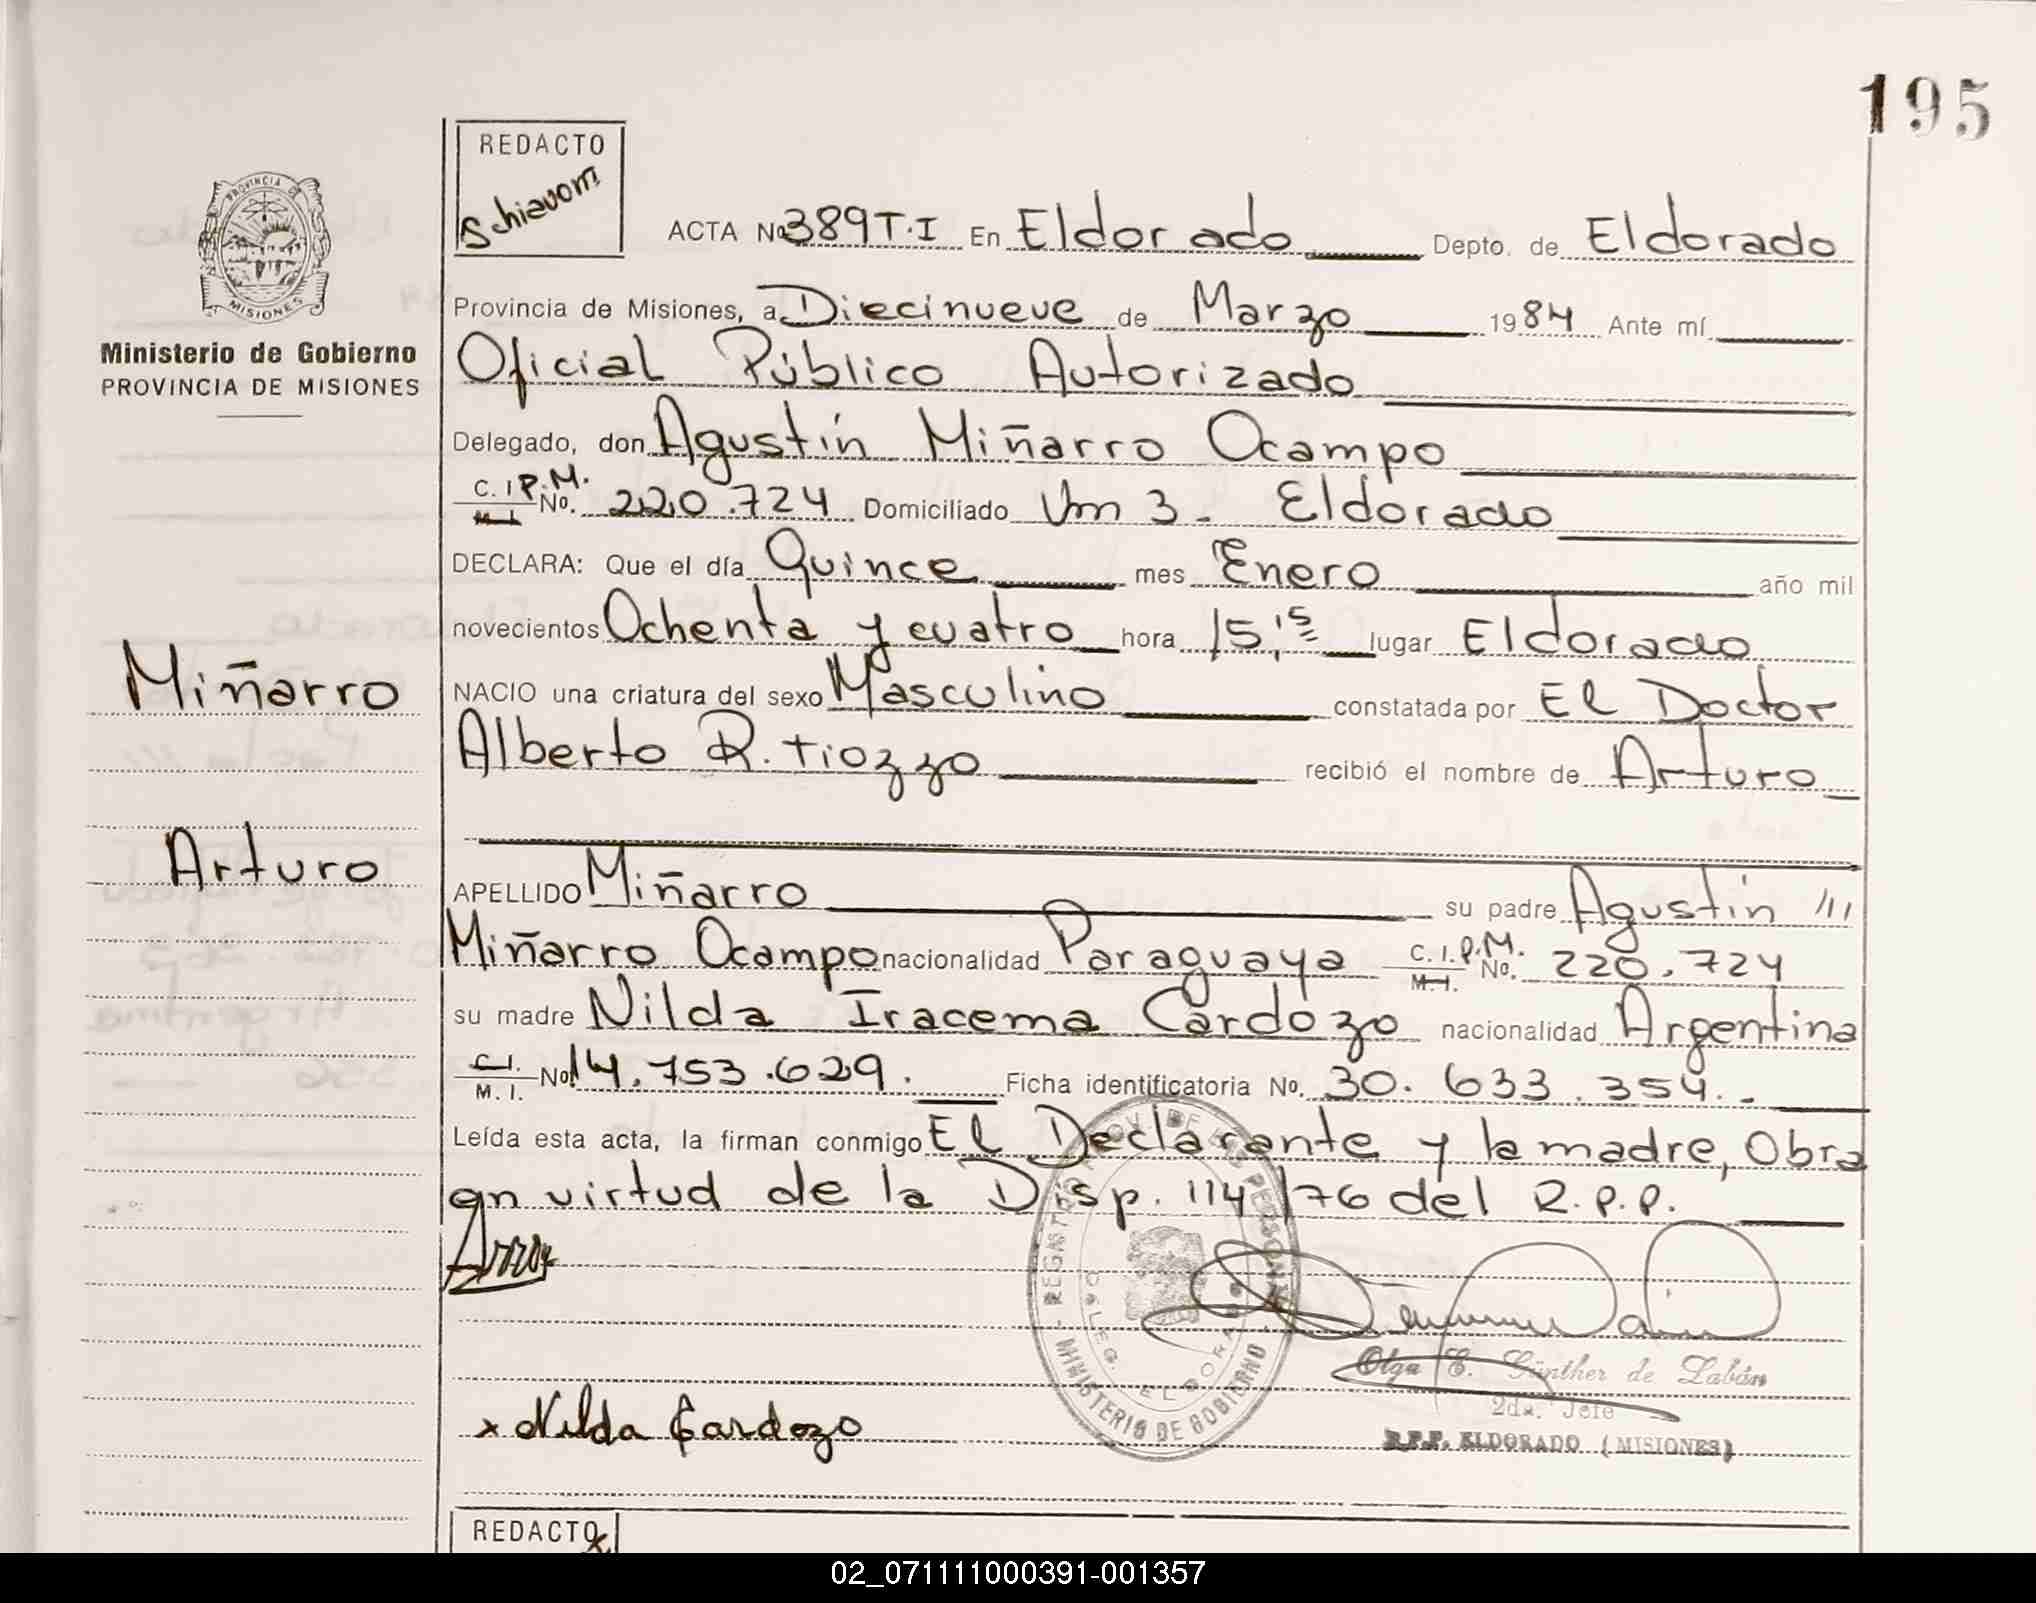 195
REDACTO
Schiavoni
PROVINCIA DE
MISIONES
Ministerio de Gobierno
PROVINCIA DE MISIONES
ACTA No 389 T.I En Eldorado Depto. de Eldorado
Provincia de Misiones, a Diecinueve de Marzo 1984 Ante mí
Oficial Público Autorizado
Delegado, don Agustín Miñarro Ocampo
C. I P.M. M.I. No. 220.724 Domiciliado Km 3 - Eldorado
DECLARA: Que el día Quince mes Enero año mil
novecientos Ochenta y cuatro hora 15,15 lugar Eldorado
NACIO una criatura del sexo Masculino constatada por El Doctor
Alberto R. Tiozzo recibió el nombre de Arturo
Miñarro
Arturo
APELLIDO Miñarro su padre Agustín ///
Miñarro Ocampo nacionalidad Paraguaya C.I.P.M. M.I. No. 220.724
su madre Nilda Iracema Cardozo nacionalidad Argentina
C.I. M.I. No 14.753.629. Ficha identificatoria No. 30.633.354.-
Leída esta acta, la firman conmigo El Declarante y la madre, Obra
en virtud de la Disp. 114/76 del R.P.P.
REGISTRO PROV. DE LAS PERSONAS
MINISTERIO DE GOBIERNO
DELEG. ELDORADO
Olga E. Günther de Labán
2da. Jefe
R.P.P. ELDORADO (MISIONES)
x Nilda Cardozo
REDACTO
02_071111000391-001357